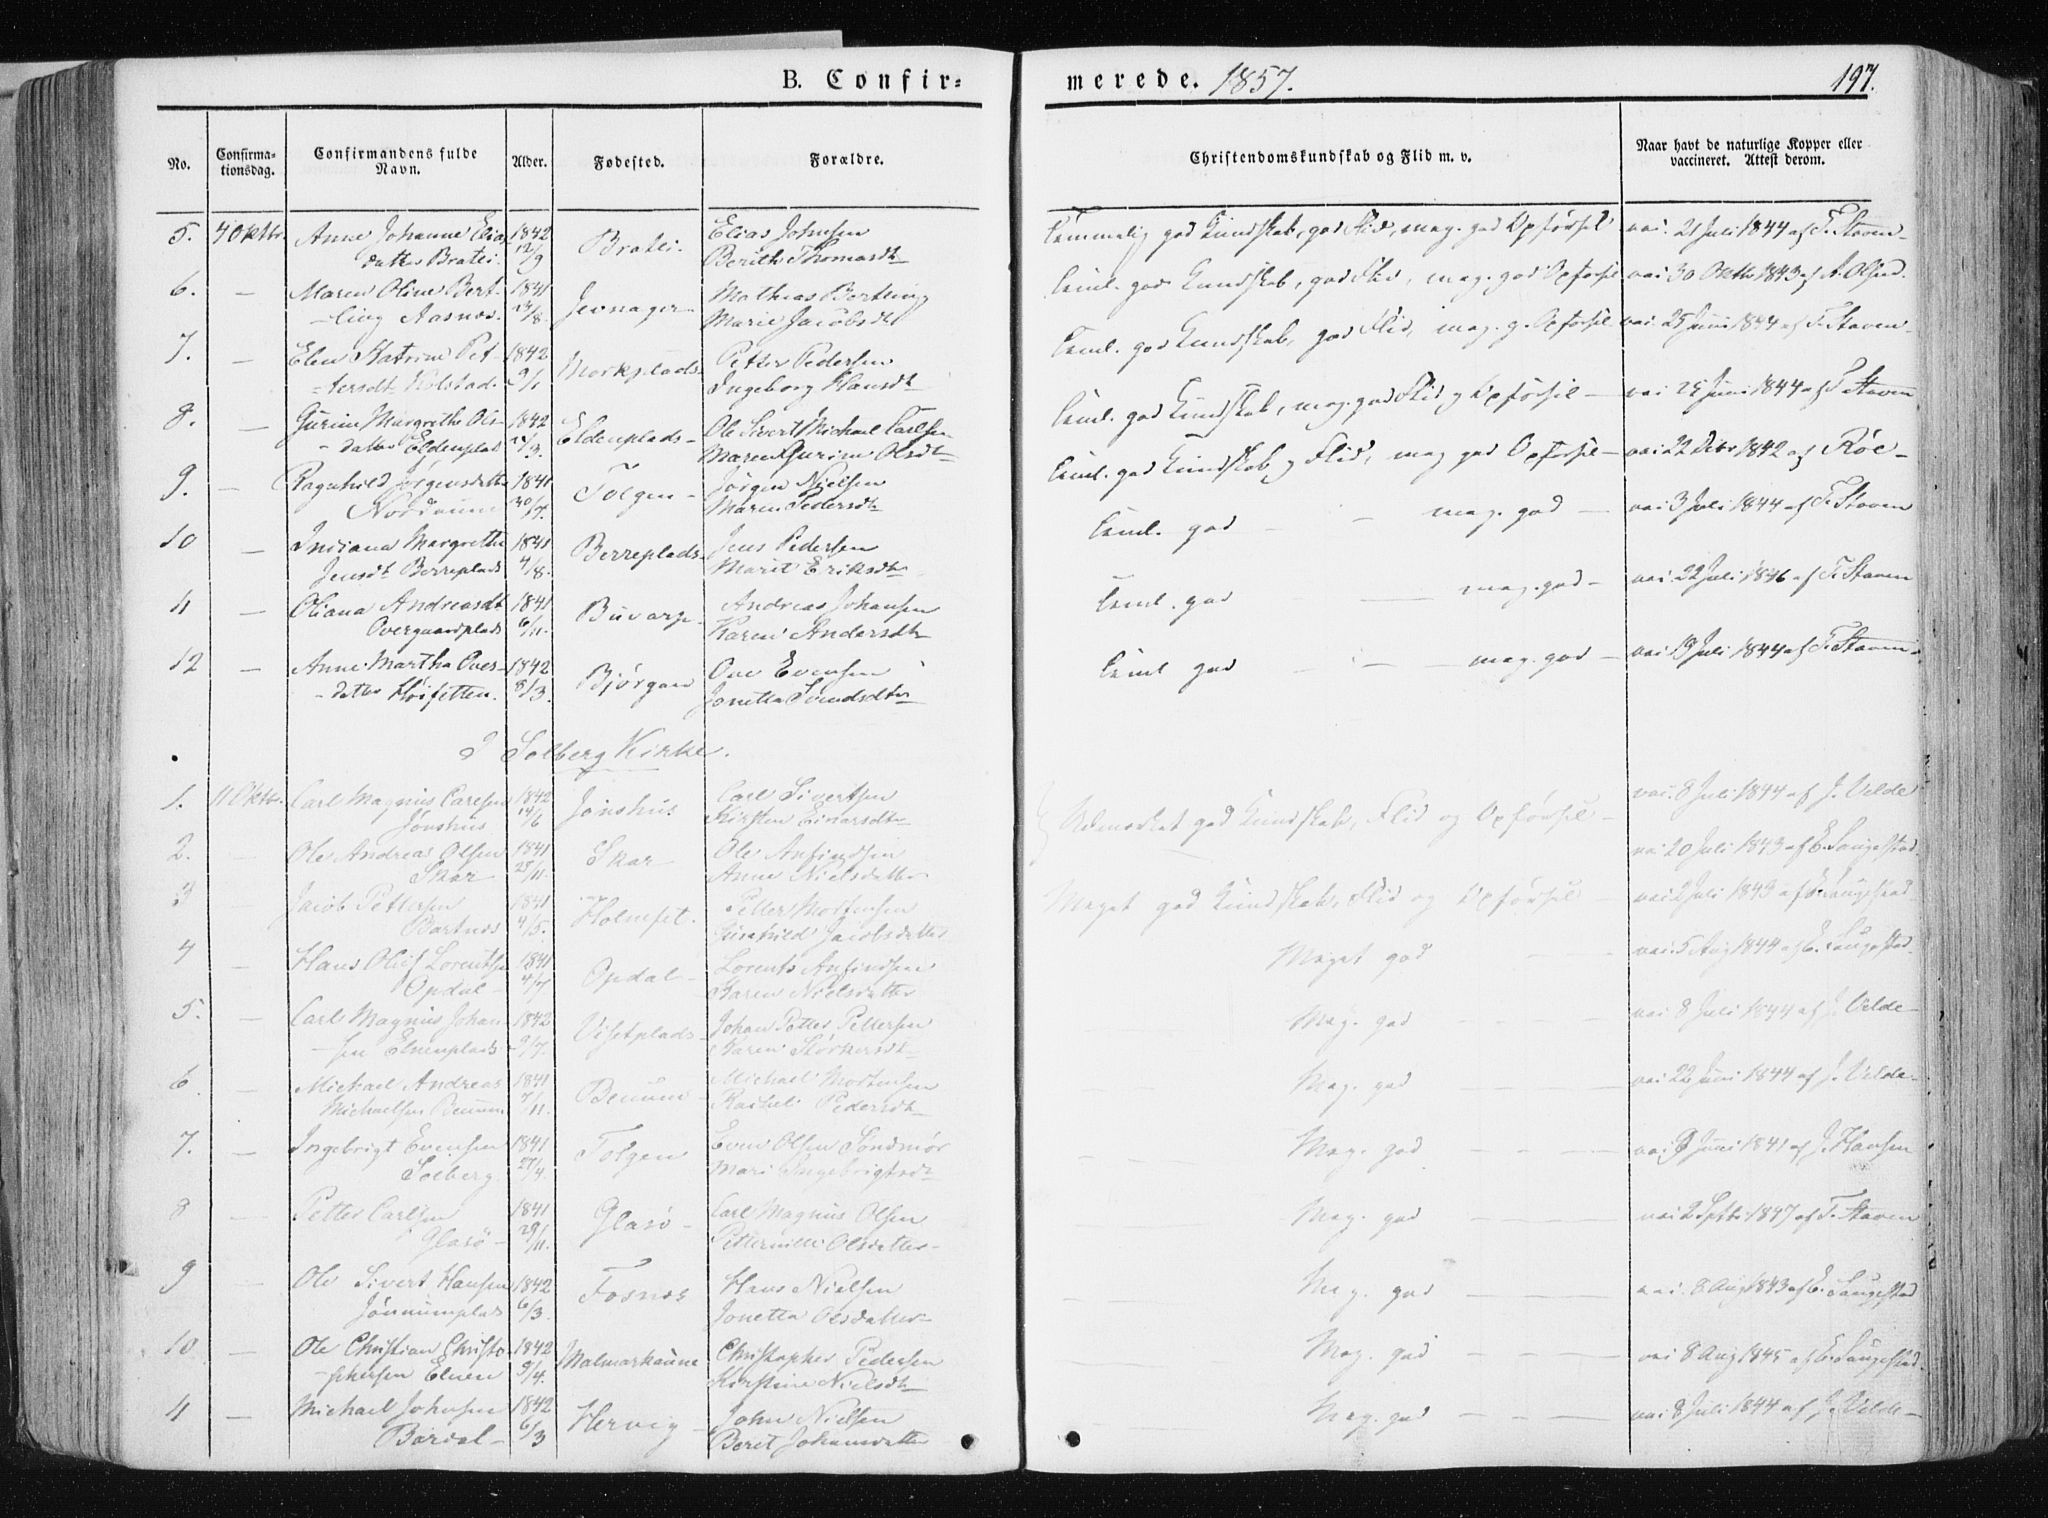 B. Confir=
merede. 1857.
197.
No.
Confirma-
tionsdag.
Confirmandens fulde
Navn.
Alder.
Fødested.
Forældre.
Christendomskundskab og Flid m. v.
Naar havt de naturlige Kopper eller
vaccineret. Attest derom.
5. 4 Oktbr. Anne Johanne Elias 1842 Elias Johnsen
datter Bratli. 12/9 Bratli. Berith Thomasdt
Temmelig god Kundskab, god Flid, meg. god Opførsel vac. 21 Juli 1844 af F. Staven
6. — Maren Oline Bert- 1841 Mathias Bertling
-ling Aasnes. 24/8. Jevnager Marie Jacobsdt
Teml. god Kundskab, god Flid, meg. god Opførsel vac 30 Oktb 1843 af A. Olsen
7. — Elen Katrine Pet- 1842 Petter Pedersen
-tersdt Kolstad. 9/1 Morkplads Ingeborg Hansdt
Teml. god Kundskab, god Flid, meg. g. Opførsel vac. 25 Juni 1844 af F. Staven
8. — Gurine Margrethe Ols- 1842 Ole Sivert Michael Carlsen
-datter Eldenplads /3. Eldenplads Maren Gurine Olsdt
Teml. god Kundskab, meg. god Flid g Opførsel — vac 25 Juni 1844 af F. Staven
9. — Ragnhild Jørgensdatter 1841 Jørgen Nielsen
30/7. Tolgen Maren Pedersdt
Teml. god Kundskab g Flid, meg god Opførsel — vac 22 Debr 1842 af Röe
10 — Indiana Margrethe 1841 Jens Pedersen
Jensdt Berreplads 4/8. Berreplads Marit Eriksdt
Teml. god — meg. god — vac 3 Juli 1844 af F. Staven
11 — Oliana Andreasdt 1841 Andreas Johansen
Overgaardplads 6/11. Buvarp Karen Andersdt
Teml. god — meg. god — vac. 22 Juli 1846 af F. Staven
12 — Anne Martha Oves- 1842 Ove Evensen
-datter Høisetten. 8/3. Bjørgan Jonetta Svendsdtr
Teml god — meg. god — vac 19 Juli 1844 af F. Staven
I Solberg Kirke.
1. 11 Oktbr. Carl Magnus Carlsen 1842 Carl Sivertsen
Jønshus 14/6 Jønshus Kirsten Einarsdtr
vac. 8 Juli 1844 af J. Velde
Udmærket god Kundskab, Flid og Opførsel —
2. — Ole Andreas Olsen 1841 Ole Anfindsen
Skar 28/11. Skar Anne Nielsdatter
vac 20 Juli 1843 af E. Saugestad
3 — Jacob Pettersen 1841 Petter Mortensen
Bartnes 4/5. Holmset. Gunhild Jacobsdatter
Meget god Kundskab, Flid og Opførsel — vac 2 Juli 1843 af E. Saugestad
4 — Hans Oluf Lorentsen 1841 Lorents Anfindsen
Opdal 4/7 Opdal Karen Nielsdatter
Meget god — vac. 5 Aug 1844 af E. Saugestad
5. — Carl Magnus Johan- 1842 Johan Petter Pettersen
-sen Elnenplads 9/7. Visetplads Karen Størkersdt
Meg. god — vac 8 Juli 1844 af J. Velde
6. — Michael Andreas 1841 Michael Mortensen
Michaelsen Benum 7/11. Benum Rachel Pedersdt
Meg. god — vac 22 Juni 1844 af J. Velde
7. — Ingebrigt Evensen 1841 Even Olsen Söndmör
Solberg 27/4. Tolgen Mari Ingebrigtsdt
Meg. god — vac 9 Juni 1841 af J. Hansen
8 — Petter Carlsen 1841 Carl Magnus Olsen
Glasö 29/11. Glasö Petternille Olsdatter
Meg. god — vac 2 Septb. 1847 af F. Staven
9 — Ole Sivert Hansen 1842 Hans Nielsen
Jönnumplads 6/3. Fosnes Jonetta Olsdatter
Meg. god — vac. 8 Aug 1843 af E. Saugestad
10 — Ole Christian Christo- 1842 Christopher Pedersen
-phersen Elnen 9/4. Malmarkaune Kirstine Nielsdt
Meg. god — vac 8 Aug 1845 af E. Saugestad
11 — Michael Johnsen 1842 John Nielsen
Bardal 6/3 Hervig Berit Johansdatter
Meg. god — vac. 8 Juli 1844 af J. Velde